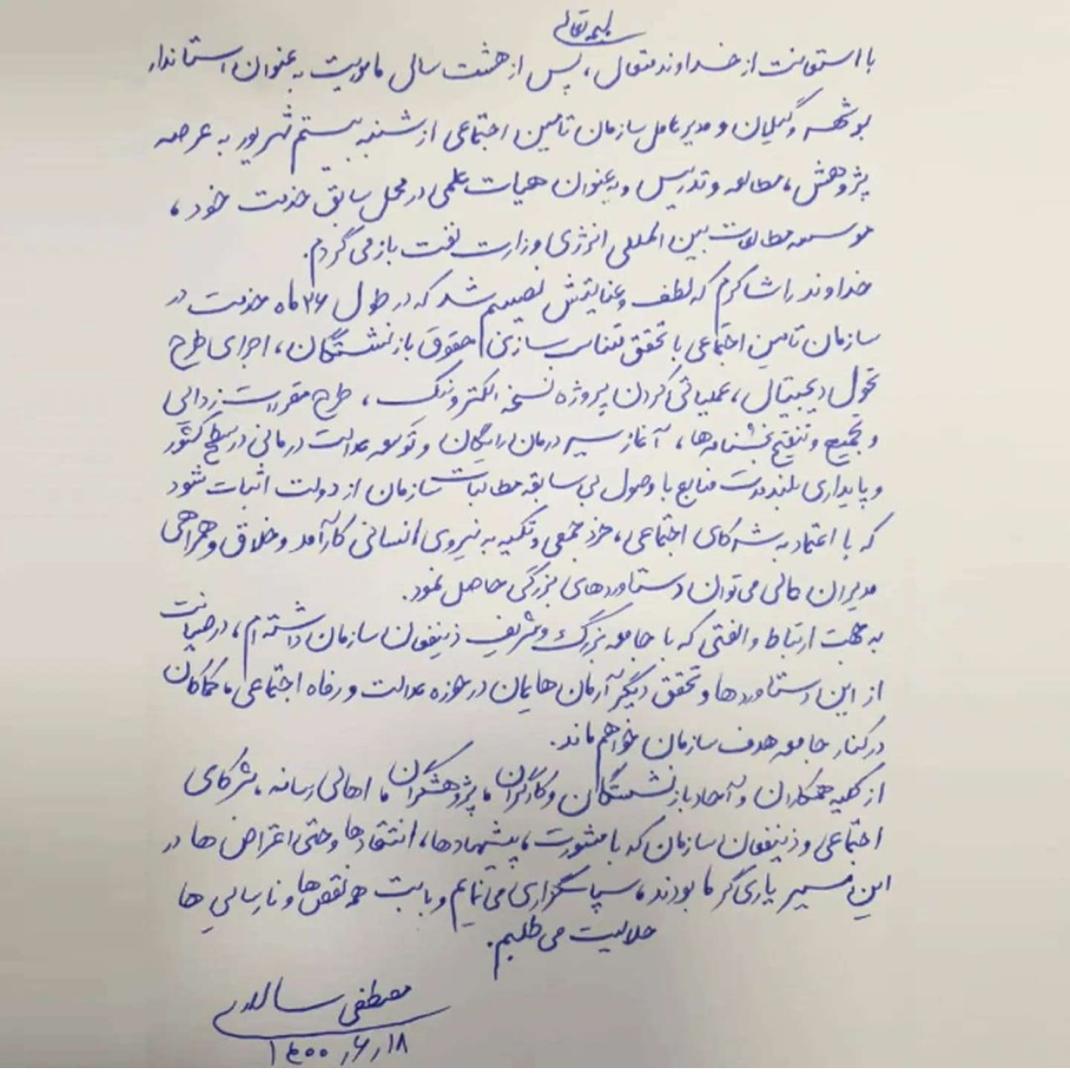 بسمه تعالی
با استعانت از خداوند متعال، پس از هشت سالی ماموریت به عنوان استاندار
بوشهر و گیلان و مدیرعامل سازمان تامین اجتماعی از شنبه بیستم شهریور به عرصه
پژوهش، مطالعه و تدریس و به عنوان هیات علمی در محل سابق خدمت خود،
موسسه مطالعات بین المللی انرژی وزارت نفت باز می گردم.
خداوند را شاکرم که لطف و عنایتش نصیبم شد که در طول ۲۶ ماه خدمت در
سازمان تامین اجتماعی با تحقق متناسب سازی حقوق بازنشستگان، اجرای طرح
تحول دیجیتال، عملیاتی کردن پروژه نسخه الکترونیک، طرح مقررات زدایی
و تجمیع و تنقیح بخشنامه ها، آغاز مسیر درمان رایگان و توسعه عدالت درمانی در سطح کشور
و پایداری بلندمدت منابع با وصول بی سابقه مطالبات سازمان از دولت اثبات شود
که با اعتماد به شرکای اجتماعی، خرد جمعی و تکیه به نیروی انسانی کارآمد و خلاق و همراهی
مدیران عالی می توان دستاوردهای بزرگی حاصل نمود.
به جهت ارتباط و الفتی که با جامعه بزرگ و شریف ذینفعان سازمان داشته ام، در صیانت
از این دستاوردها و تحقق دیگر آرمان هایمان در حوزه عدالت و رفاه اجتماعی، کماکان
در کنار جامعه هدف سازمان خواهم ماند.
از کلیه همکاران و آحاد بازنشستگان و کارگران، پژوهشگران، اهالی رسانه، شرکای
اجتماعی و ذینفعان سازمان که با مشورت، پیشنهادها، انتقادها و حتی اعتراض ها در
این مسیر یاری گر ما بودند، سپاسگزاری می نمایم و بابت همه نقص ها و نارسایی ها
حلالیت می طلبم.
مصطفی سالاری
۱۴۰۰٫۶٫۱۸